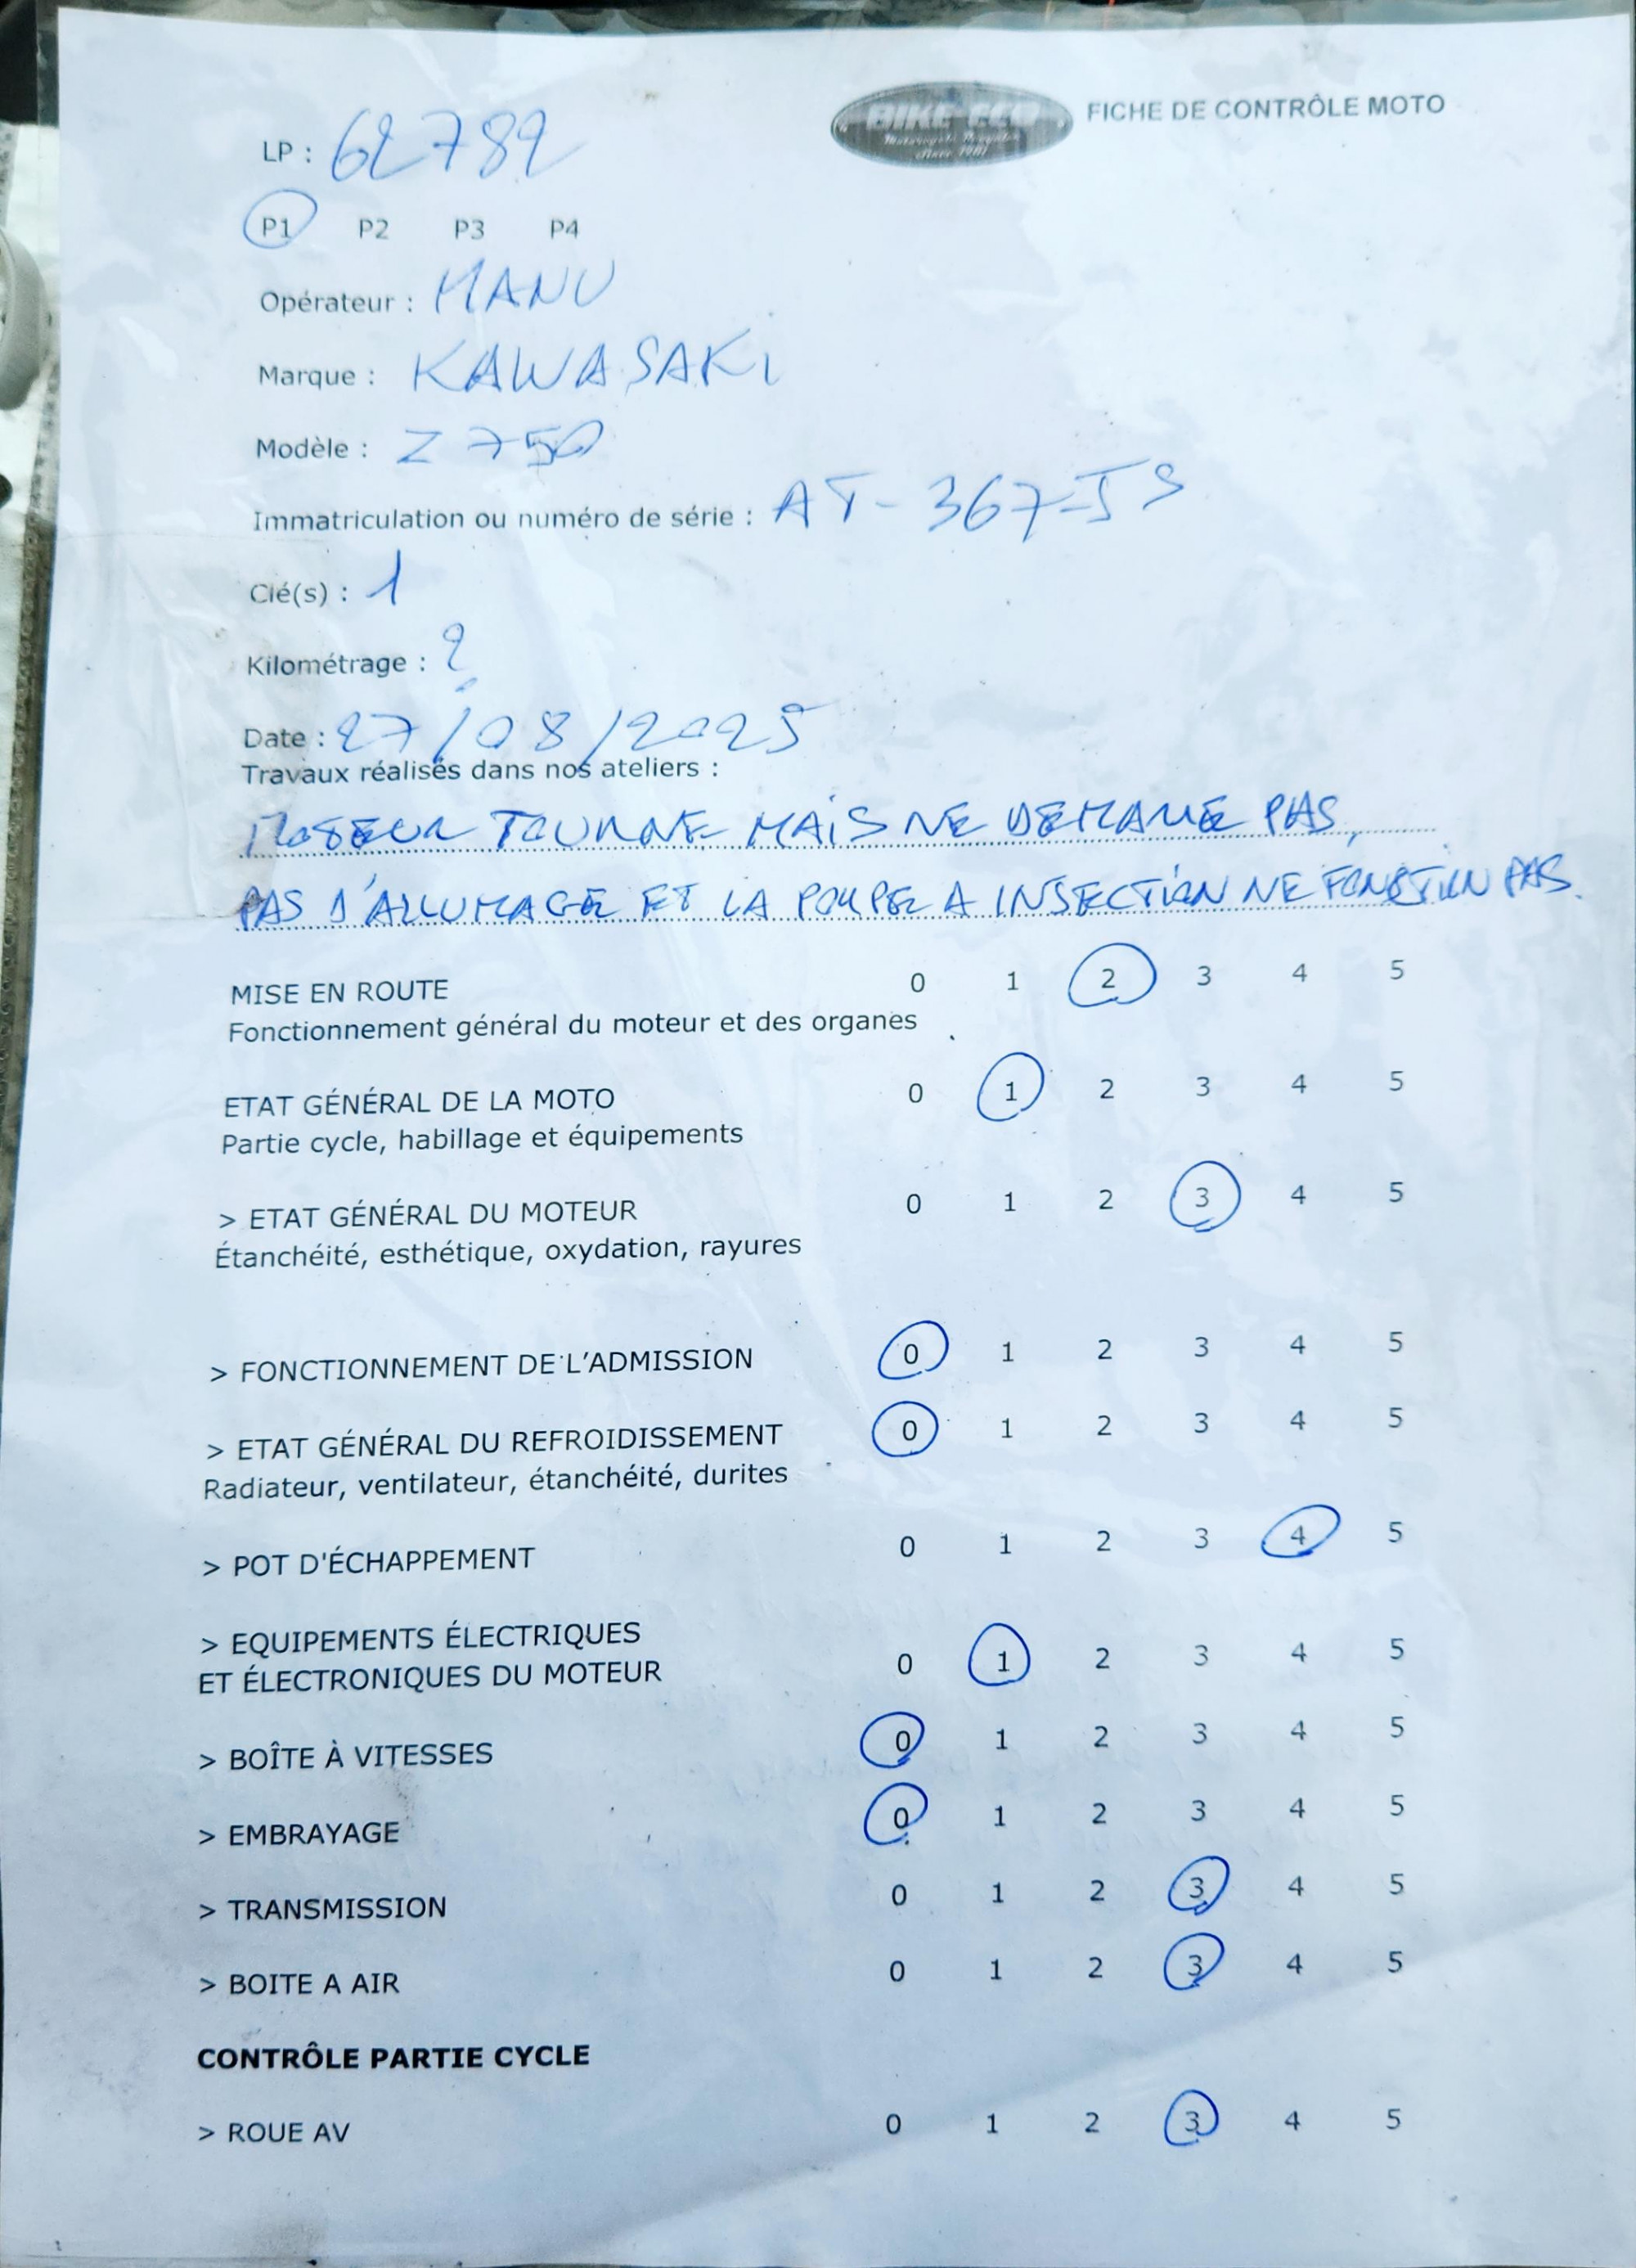 BIKE ECO FICHE DE CONTRÔLE MOTO
LP : 62782
P1 P2 P3 P4
Opérateur : MANU
Marque : KAWASAKI
Modèle : Z 750
Immatriculation ou numéro de série : AT-367-JS
Clé(s) : 1
Kilométrage : ?
Date : 27/08/2025
Travaux réalisés dans nos ateliers :
MOTEUR TOURNE MAIS NE DEMARE PAS,
PAS D'ALLUMAGE ET LA POMPE A INJECTION NE FONCTION PAS.
MISE EN ROUTE 0 1 2 3 4 5
Fonctionnement général du moteur et des organes
ETAT GÉNÉRAL DE LA MOTO 0 1 2 3 4 5
Partie cycle, habillage et équipements
> ETAT GÉNÉRAL DU MOTEUR 0 1 2 3 4 5
Étanchéité, esthétique, oxydation, rayures
> FONCTIONNEMENT DE L'ADMISSION 0 1 2 3 4 5
> ETAT GÉNÉRAL DU REFROIDISSEMENT 0 1 2 3 4 5
Radiateur, ventilateur, étanchéité, durites
> POT D'ÉCHAPPEMENT 0 1 2 3 4 5
> EQUIPEMENTS ÉLECTRIQUES
ET ÉLECTRONIQUES DU MOTEUR 0 1 2 3 4 5
> BOÎTE À VITESSES 0 1 2 3 4 5
> EMBRAYAGE 0 1 2 3 4 5
> TRANSMISSION 0 1 2 3 4 5
> BOITE A AIR 0 1 2 3 4 5
CONTRÔLE PARTIE CYCLE
> ROUE AV 0 1 2 3 4 5